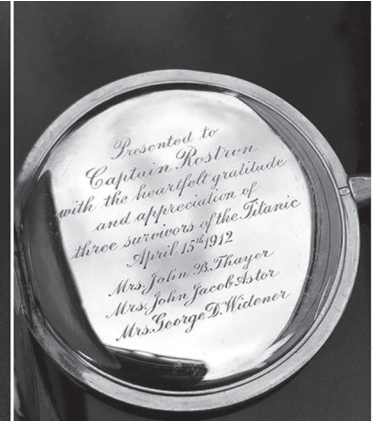 Presented to
Captain Rostron
with the heartfelt gratitude
and appreciation of
three survivors of the Titanic
April 15th 1912
Mrs. John B. Thayer
Mrs. John Jacob Astor
Mrs. George D. Widener